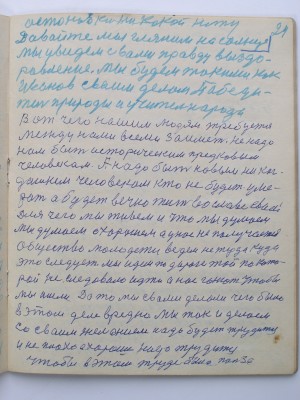 остановки ни какой нету
31
Давайте мы глянем на солнце
мы увидем с вами правду выздо-
равление. мы будем такими как
Иванов своим делом Победи-
тил природы и учител народа
Вот чего нашим людям требуется
между нами всеми займет. не надо
нам быт историческим предковым
человекам. А надо быт новым неког-
дашнем человекам кто не будет уми-
рат а будет вечно жит во славе своей
Для чего мы живем и что мы думаем
мы думаем о хорошем а у нас не получается
общество молодежи ведем не туда куда
это следует мы идем по дороге той по кото-
рой не следовало идти а нас гонют чтобы
мы шли. До то мы с вами делом чего было
в этом деле вредно мы так и делаем
со своим желанием надо будет трудит
и не плохо а хорошо надо трудит
чтобы в этом труде была польза